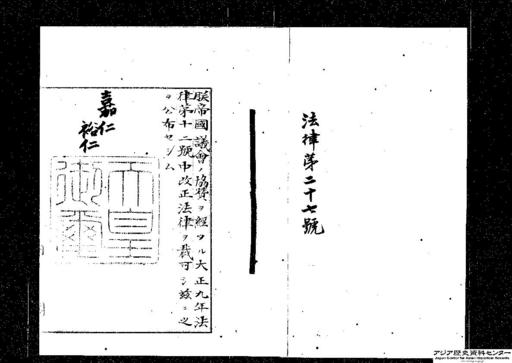 法律第二十七號
朕帝國議會ノ協贊ヲ經タル大正九年法
律第十二號中改正法律ヲ裁可シ茲ニ之
ヲ公布セシム
嘉仁
裕仁
天皇
御璽
アジア歴史資料センター
Japan Center for Asian Historical Records